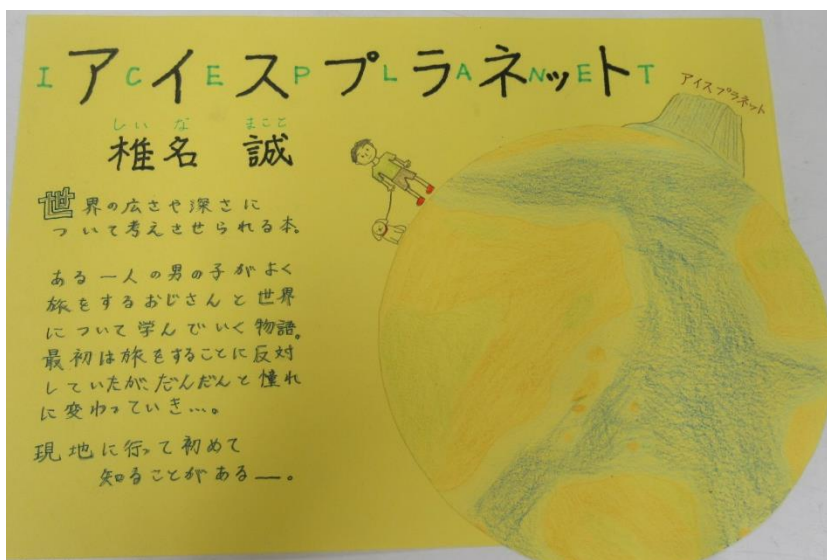 アイスプラネット
I C E P L A N E T
アイスプラネット
しいな まこと
椎名 誠
世界の広さや深さに
ついて考えさせられる本。
ある一人の男の子がよく
旅をするおじさんと世界
について学んでいく物語。
最初は旅をすることに反対
していたが、だんだんと憧れ
に変わっていき…。
現地に行って初めて
知ることがある―。